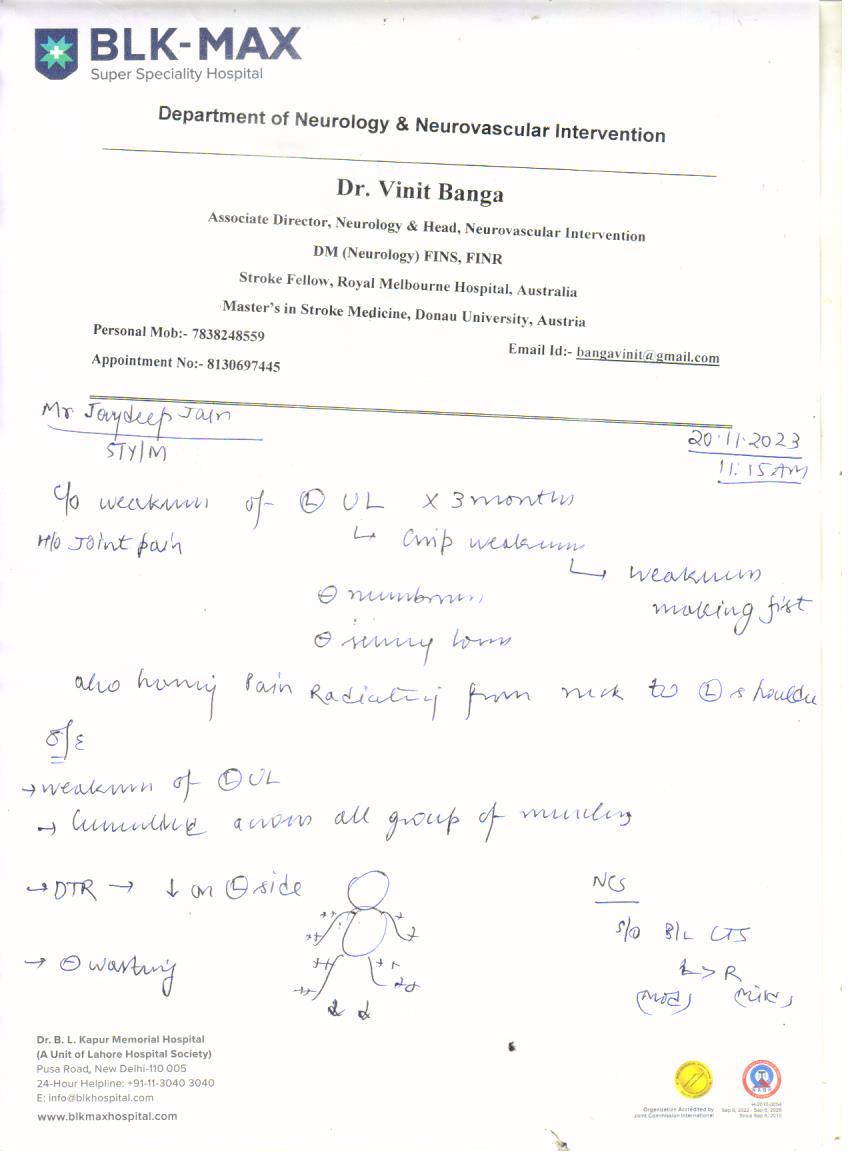 BLK-MAX
Super Speciality Hospital
Department of Neurology & Neurovascular Intervention
Dr. Vinit Banga
Associate Director, Neurology & Head, Neurovascular Intervention
DM (Neurology) FINS, FINR
Stroke Fellow, Royal Melbourne Hospital, Australia
Master's in Stroke Medicine, Donau University, Austria
Personal Mob:- 7838248559
Email Id:- bangavinit@gmail.com
Appointment No:- 8130697445
Mr Jaydeep Jain
20.11.2023
57Y/M
11:15AM
c/o weakness of Ⓛ UL x 3 months
H/o Joint pain
↳ Grip weakness
↳ weakness
making fist
⊖ numbness
⊖ sensory loss
also having Pain Radiating from neck to Ⓛ shoulder
O/E
→ weakness of Ⓛ UL
→ across all group of muscles
→ DTR → ↓ on Ⓛ side
NCS
S/O B/L CTS
→ ⊖ wasting
L > R
(mod) (mild)
Dr. B. L. Kapur Memorial Hospital
(A Unit of Lahore Hospital Society)
Pusa Road, New Delhi-110 005
24-Hour Helpline: +91-11-3040 3040
E: info@blkhospital.com
www.blkmaxhospital.com
Organization Accredited by
Joint Commission International